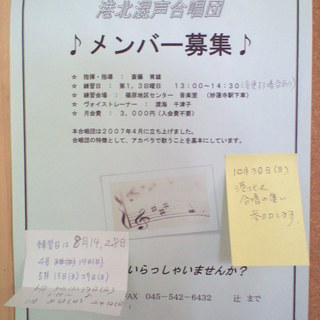 港北混声合唱団
♪メンバー募集♪
☆ 指揮・指導 : 斎藤 常雄
☆ 練習日 : 第1,3日曜日 13:00〜14:30
☆ 練習会場 : 篠原地区センター 音楽室 (妙蓮寺駅下車)
☆ ヴォイストレーナー : 渡海 千津子
☆ 月会費 : 3,000円(入会費不要)
本合唱団は2007年4月に立ち上げました。
合唱団の特徴として、アカペラで歌うことを基本にしています。
10月30日(日)
港北区
合唱の集い
参加します
練習日は 8月14,28日
いらっしゃいませんか?
FAX 045-542-6432 辻 まで